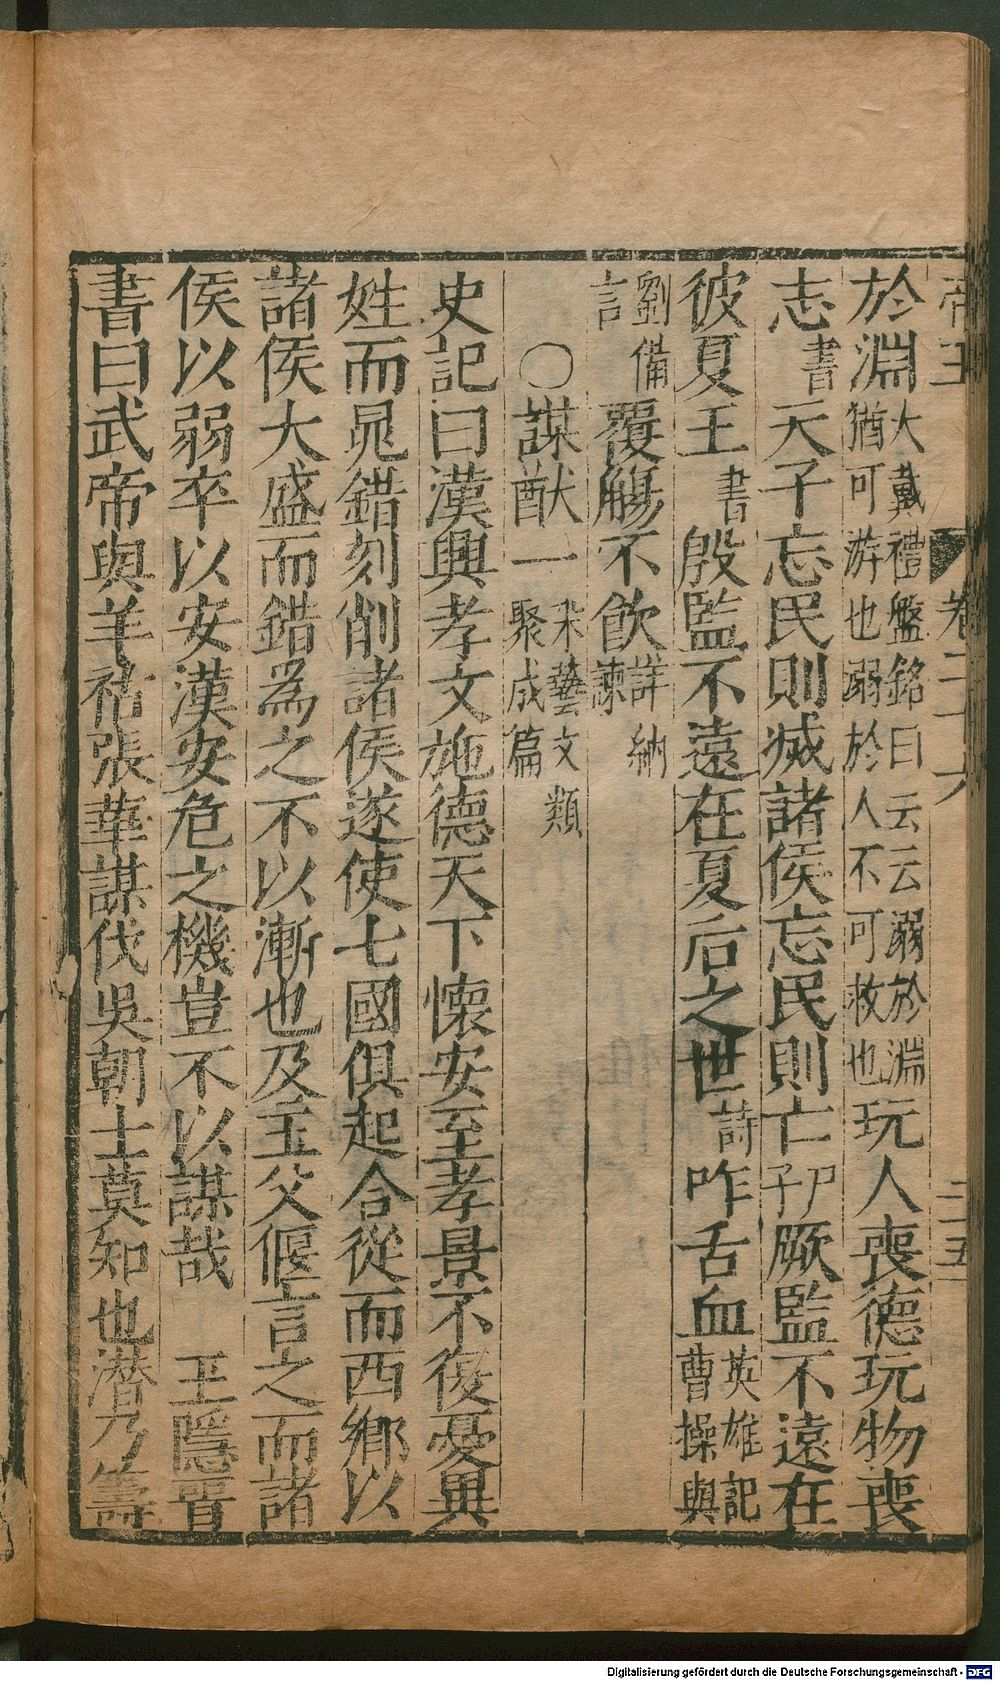 帝王 卷二十六 二十五
於淵大戴禮盤銘曰云云溺於淵猶可游也溺於人不可救也玩人喪德玩物喪
志書天子忘民則滅諸侯忘民則亡尸子厥監不遠在
彼夏王書殷監不遠在夏后之世詩咋舌血英雄記曹操與
劉備言覆觴不飲詳納諫
〇謀猷一朱藝文類聚成篇
史記曰漢興孝文施德天下懷安至孝景不復憂異
姓而晁錯刻削諸侯遂使七國俱起合從而西鄉以
諸侯大盛而錯為之不以漸也及主父偃言之而諸
侯以弱卒以安漢安危之機豈不以謀哉 王隱晋
書曰武帝與羊祜張華謀伐吳朝士莫知也潜乃籌
Digitalisierung gefördert durch die Deutsche Forschungsgemeinschaft - DFG